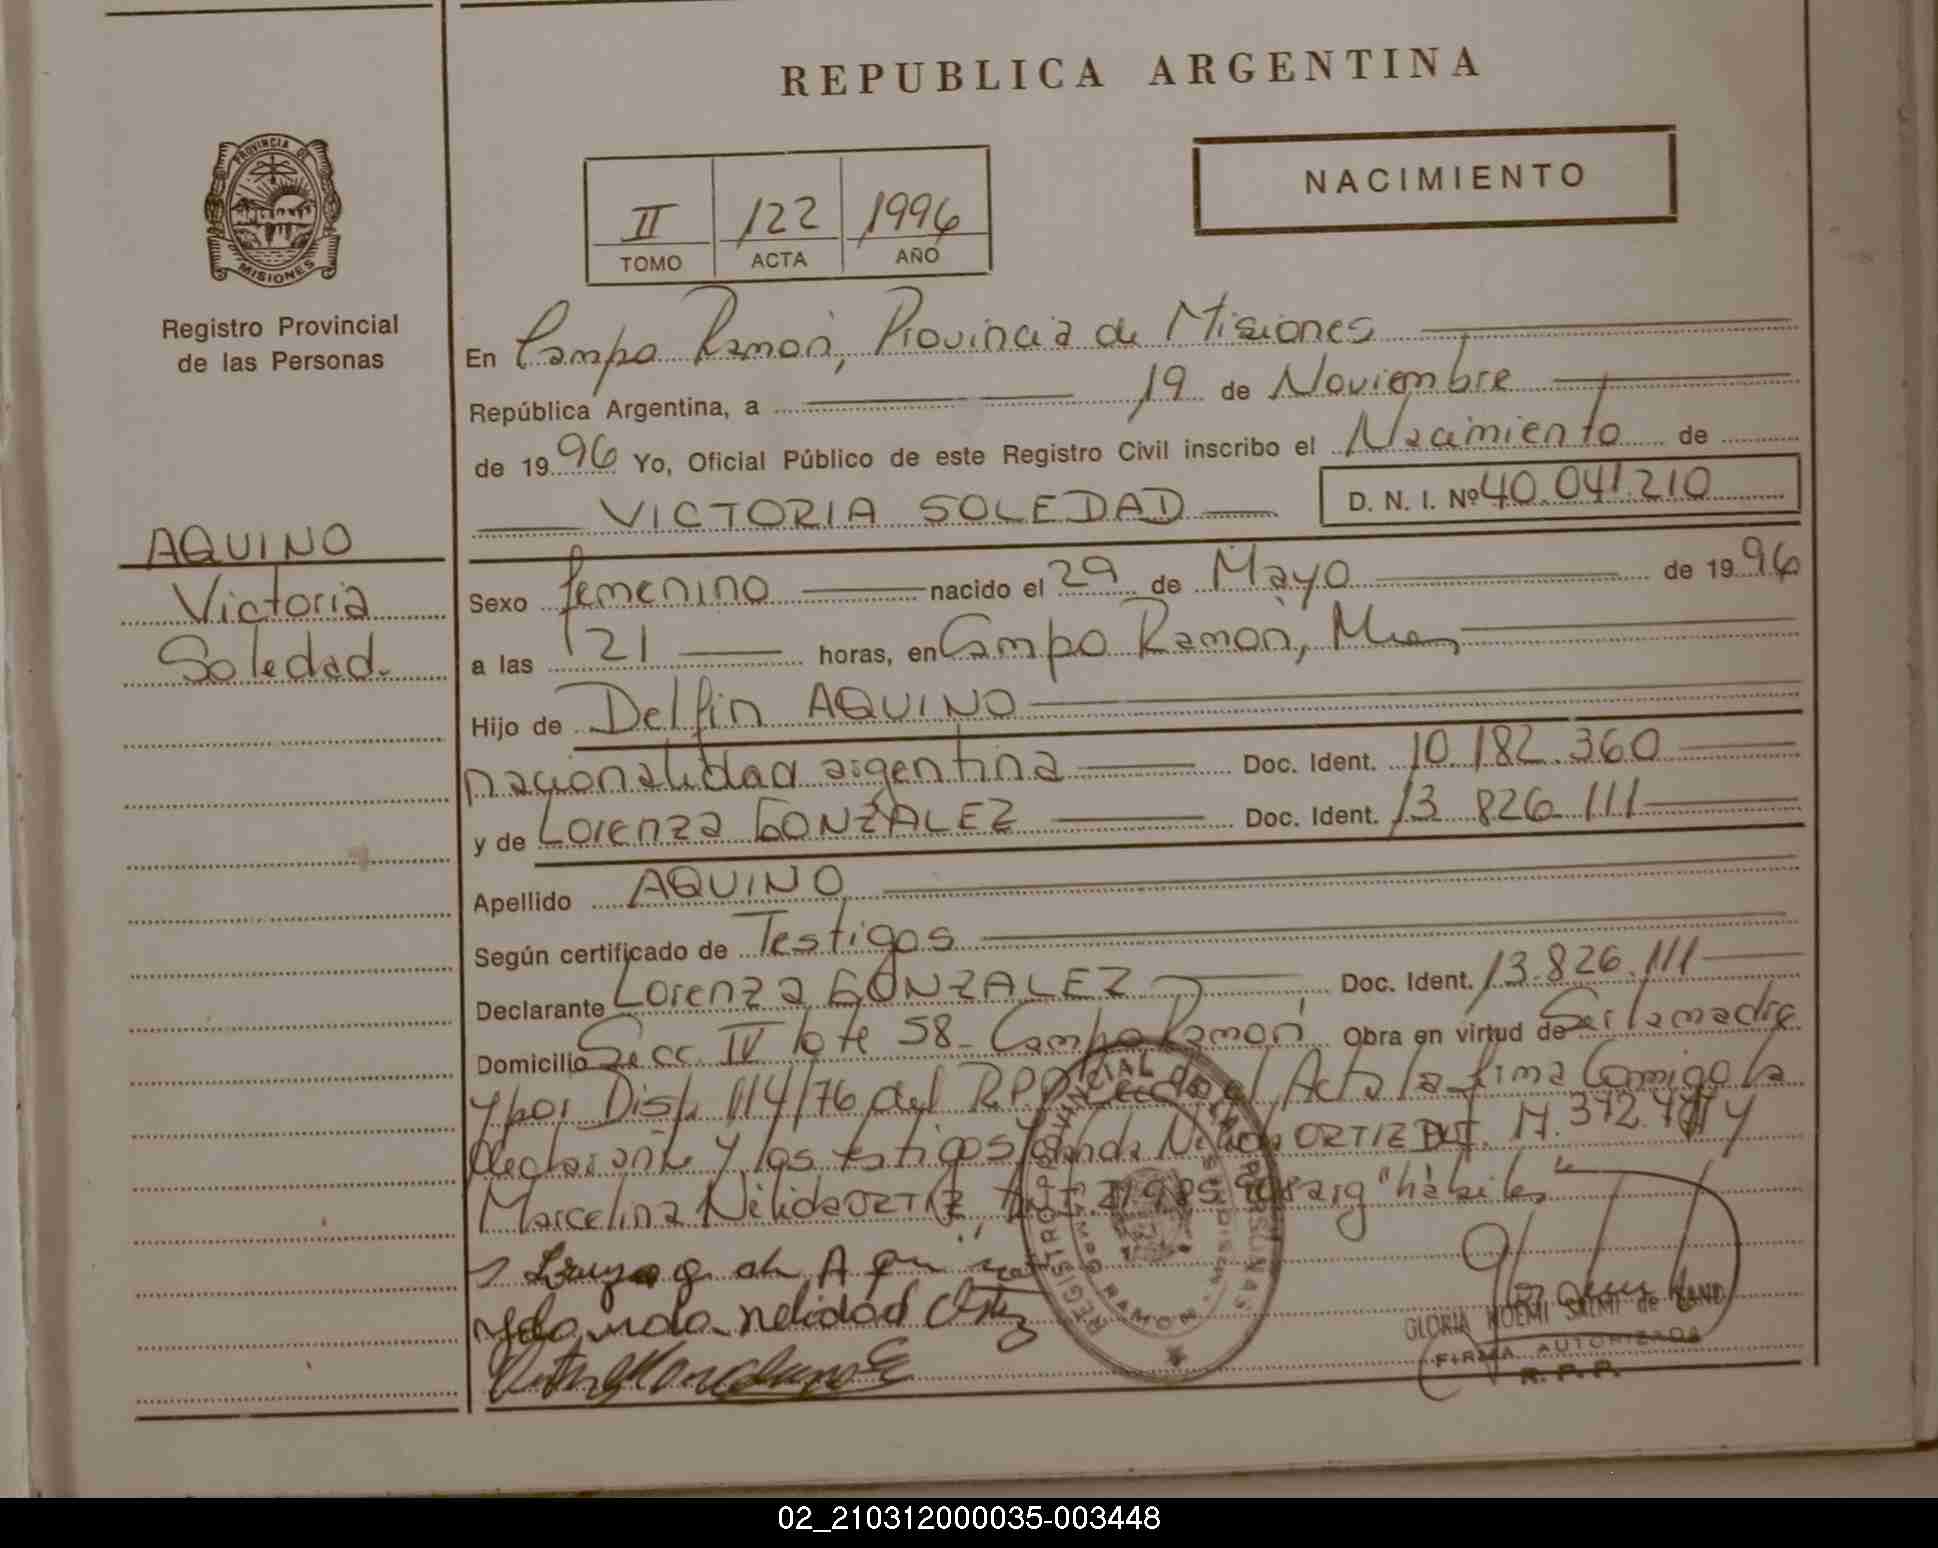 REPUBLICA ARGENTINA
NACIMIENTO
II 122 1996
TOMO ACTA AÑO
PROVINCIA DE
MISIONES
Registro Provincial
de las Personas
AQUINO
Victoria
Soledad.
En Campo Ramón, Provincia de Misiones
República Argentina, a 19 de Noviembre
de 1996 Yo, Oficial Público de este Registro Civil inscribo el Nacimiento de
VICTORIA SOLEDAD D. N. I. Nº 40.041.210
Sexo femenino nacido el 29 de Mayo de 1996
a las 21 horas, en Campo Ramón, Mnes,
Hijo de Delfin AQUINO
nacionalidad argentina Doc. Ident. 10.182.360
y de Lorenza GONZALEZ Doc. Ident. 13.826.111
Apellido AQUINO
Según certificado de Testigos
Declarante Lorenza GONZALEZ Doc. Ident. 13.826.111
Domicilio Secc. IV lote 58 - Campo Ramón Obra en virtud de Ser la madre
y por Disp. 114/76 del RPP el Acta la firma Comigo la
declarante y los testigos ORTIZ DNI. 17.372. y
Marcelina Nélida ORTIZ, arg "hábiles"
REGISTRO PROVINCIAL DE LAS PERSONAS
CAMPO RAMON
MISIONES
GLORIA NOEMI
FIRMA AUTORIZADA
R. P. P.
02_210312000035-003448